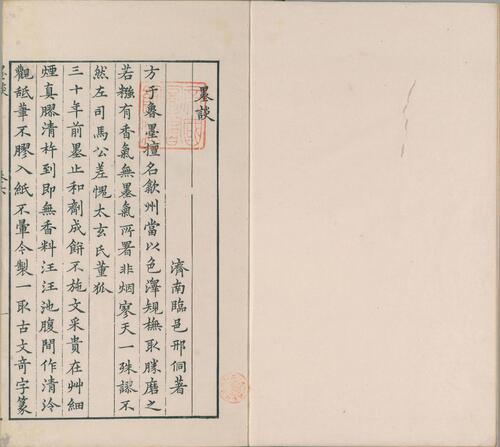 墨談
濟南臨邑邢侗著
方于魯墨擅名歙州當以色澤規橅取勝磨之
若糨有香氣無墨氣所署非烟寥天一殊謬不
然左司馬公差愧太玄氏董狐
三十年前墨止和劑成餅不施文采貴在艸細
煙真膠清杵到即無香料汪汪池腹間作清泠
觀舐筆不膠入紙不暈今製一取古文奇字篆
墨談
卷六